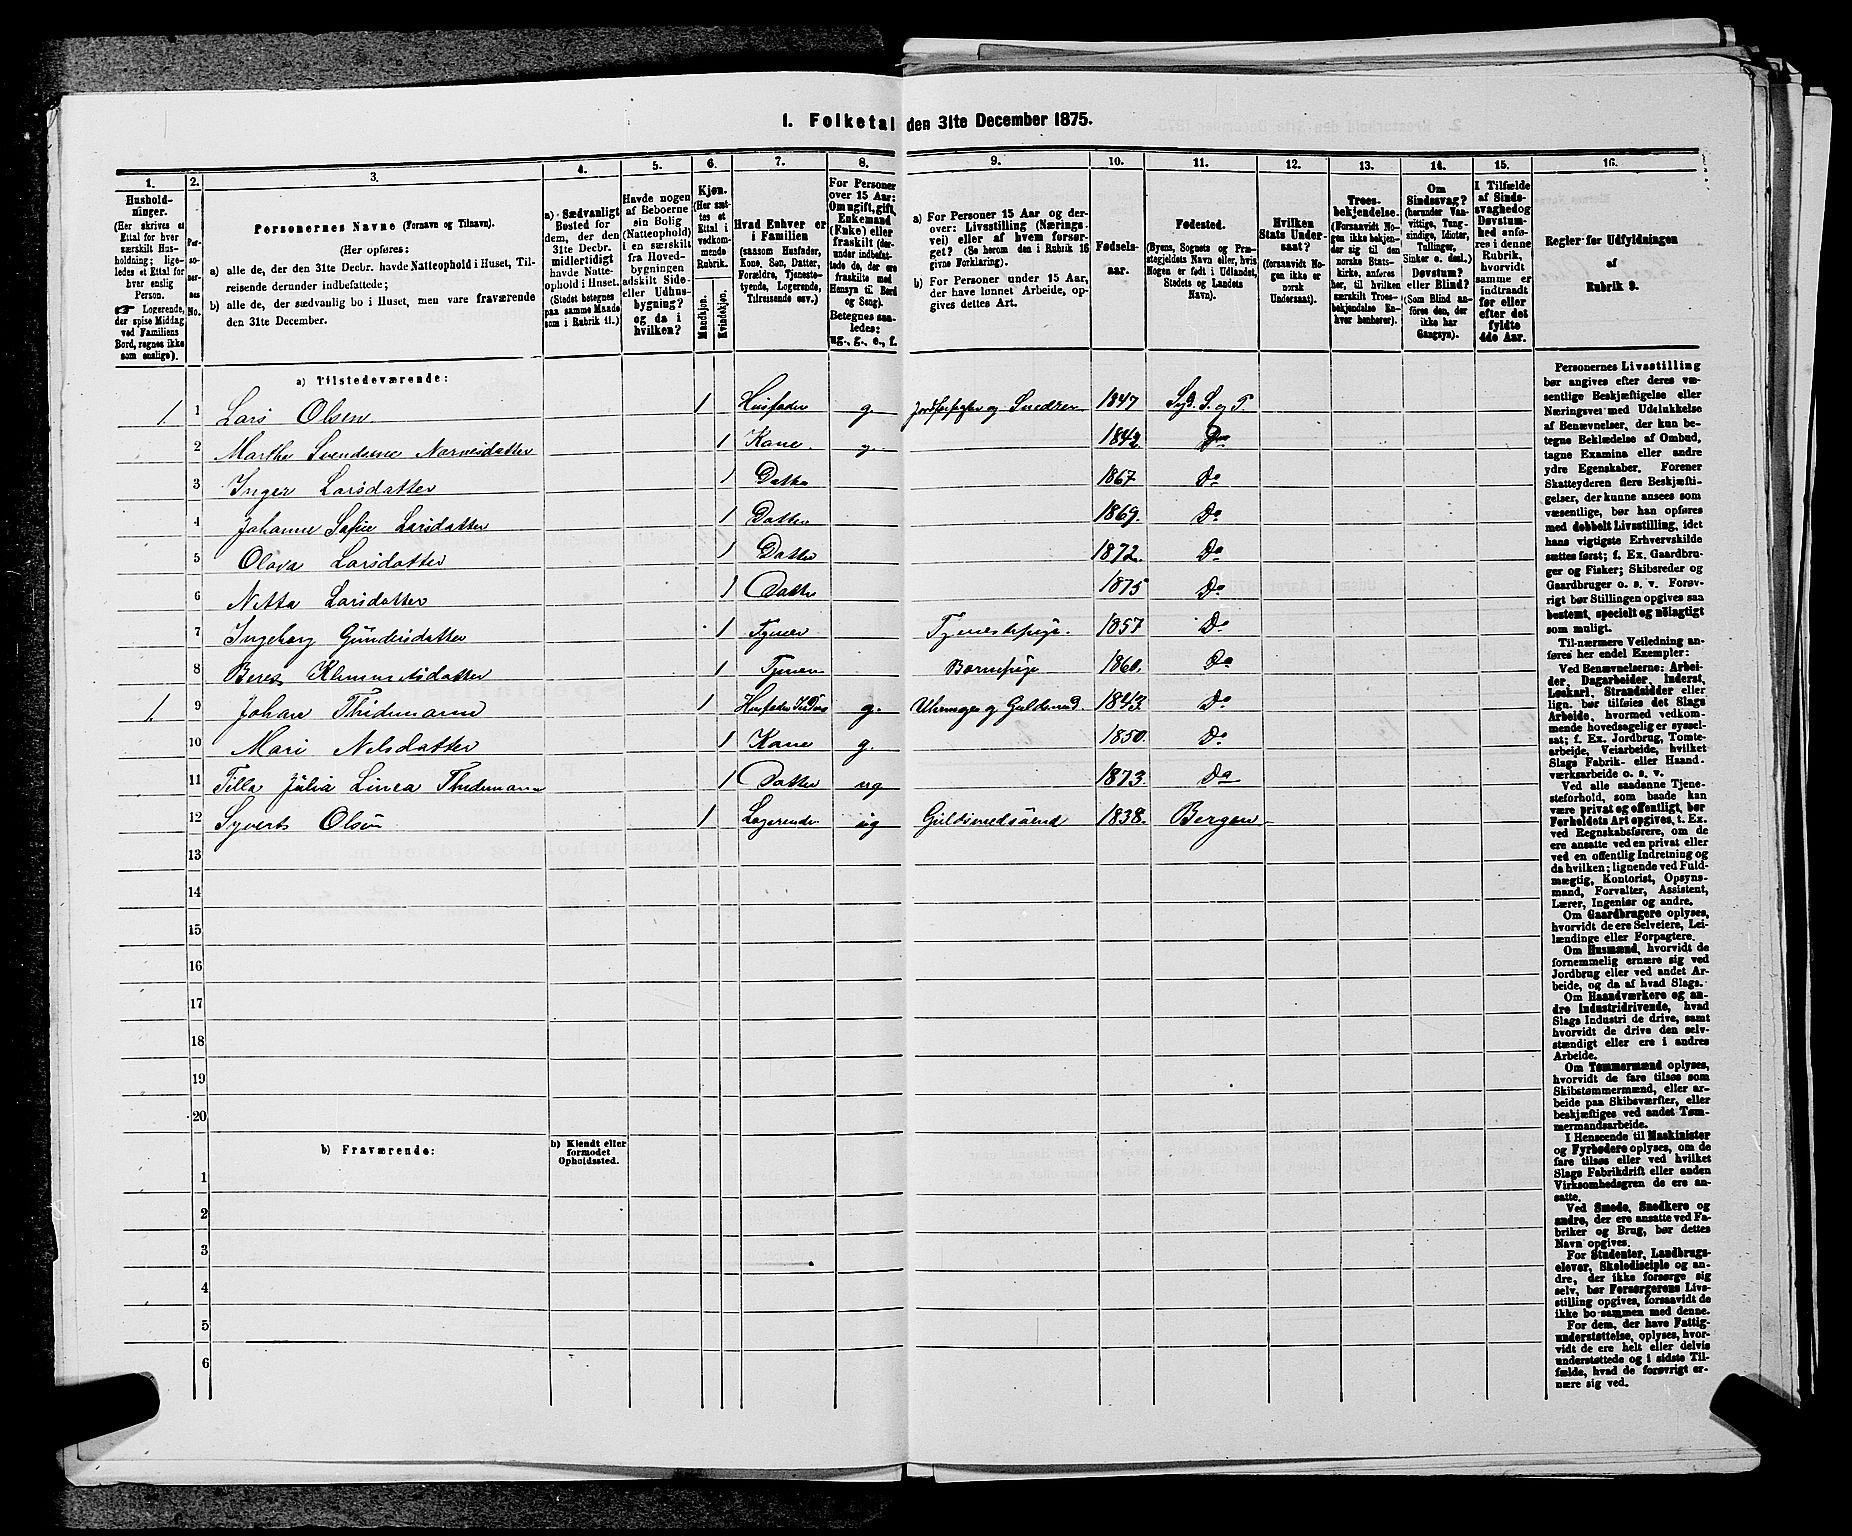 1. Folketal den 31te December 1875.
1. 2. 3. 4. 5. 6. 7. 8. 9. 10. 11. 12. 13. 14. 15. 16.
Hushold-
ninger.
(Her skrives et
Ettal for hver
særskilt Hus-
holdning; lige-
ledes et Ettal for
hver enslig
Person.
☞ Logerende,
der spise Middag
ved Familiens
Bord, regnes ikke
som enslige).
Per-
so-
ner-
nes
No.
Personernes Navne (Fornavn og Tilnavn).
(Her opføres:
a) alle de, der den 31te Decbr. havde Natteophold i Huset, Til-
reisende derunder indbefattede;
b) alle de, der sædvanlig bo i Huset, men vare fraværende
den 31te December.
a) Sædvanligt
Bosted for
dem, der den
31te Decbr.
midlertidigt
havde Natte-
ophold i Huset.
(Stedet betegnes
paa samme Maade
som i Rubrik 11.)
Havde nogen
af Beboerne
sin Bolig
(Natteophold)
i en særskilt
fra Hoved-
bygningen
adskilt Side-
eller Udhus-
bygning?
og da i
hvilken?
Kjøn.
(Her sæt-
tes et
Ettal i
vedkom-
mende
Rubrik.
Mandkjøn.
Kvindekjøn.
Hvad Enhver er
i Familien
(saasom Husfader,
Kone, Søn, Datter,
Forældre, Tjeneste-
tyende, Logerende,
Tilreisende osv.)
For Personer
over 15 Aar:
Om ugift, gift,
Enkemand
(Enke) eller
fraskilt (der-
under indbefat-
tede de, der ere
fraskilte med
Hensyn til Bord
og Seng).
Betegnes saa-
ledes:
ug., g., e., f.
a) For Personer 15 Aar og der-
over: Livsstilling (Nærings-
vei) eller af hvem forsør-
get. (Se herom den i Rubrik 16
givne Forklaring).
b) For Personer under 15 Aar,
der have lønnet Arbeide, op-
gives dettes Art.
Fødsels-
aar.
Fødested.
(Byens, Sognets og Præ-
stegjeldets Navn eller, hvis
Nogen er født i Udlandet,
Stedets og Landets
Navn).
Hvilken
Stats Under-
saat?
(forsaavidt No-
gen ikke er
norsk
Undersaat).
Troes-
bekjendelse.
(Forsaavidt No-
gen ikke bekjen-
der sig til den
norske Stats-
kirke, anføres
her, til hvilken
særskilt Troes-
bekjendelse En-
hver henhører).
Om
Sindssvag?
(herunder Van-
vittige, Tung-
sindige, Idioter,
Tullinger,
Sinker o. desl.)
Døvstum?
eller Blind?
(Som Blind an-
føres den, der
ikke har
Gangsyn).
I Tilfælde
af Sinds-
svaghed og
Døvstum-
hed anfø-
res i denne
Rubrik,
hvorvidt
samme er
indtraadt
før eller
efter det
fyldte
4de Aar.
Regler for Udfyldningen
af
Rubrik 9.
a) Tilstedeværende:
1. 1 Lars Olsen 1 Husfader g. og Snedker 1847 S. og P.
2 Martha 1 Kone g. 1842 Do
3 Inger Larsdatter 1 Datter 1867 Do
4 Johanne Larsdatter 1 Datter 1869. Do
5 Olava Larsdatter 1 Datter 1872. Do
6 Netta Larsdatter 1 Datter 1875 Do
7 Ingeborg 1 1857 Do
8 1 1860. Do
1. 9 Johan Thidemann 1 Husfader g. 1843. Do
10 Mari Nilsdatter 1 Kone g. 1850. Do
11 Tilla Julia Linea Thidemann 1 Datter ug 1873. Do
12 Syvert Olsen 1 Logerende ug Guldsmedsvend 1838. Bergen
13
14
15
16
17
18
19
20
b) Fraværende:
b) Kjendt eller
formodet
Opholdssted.
1
2
3
4
5
6
Personernes Livsstilling
bør angives efter deres væ-
sentlige Beskjæftigelse eller
Næringsvei med Udelukkelse
af Benævnelser, der kun be-
tegne Beklædelse af Ombud,
tagne Examina eller andre
ydre Egenskaber. Forener
Skatteyderen flere Beskjæfti-
gelser, der kunne ansees som
væsentlige, bør han opføres
med dobbelt Livsstilling, idet
hans vigtigste Erhvervskilde
sættes først; f. Ex. Gaardbru-
ger og Fisker; Skibsreder og
Gaardbruger o. s. v. Forøv-
rigt bør Stillingen opgives saa
bestemt, specielt og nøiagtigt
som muligt.
Til nærmere Veiledning an-
føres her endel Exempler:
Ved Benævnelserne: Arbei-
der, Dagarbeider, Inderst,
Løskarl, Strandsidder eller
lign. bør tilføies det Slags
Arbeide, hvormed vedkom-
mende hovedsagelig er syssel-
sat; f. Ex. Jordbrug, Tomte-
arbeide, Veiarbeide, hvilket
Slags Fabrik- eller Haand-
værksarbeide o. s. v.
Ved alle saadanne Tjene-
steforhold, som baade kan
være privat og offentligt, bør
Forholdets Art opgives, t. Ex.
ved Regnskabsførere, om de
ere ansatte ved en privat eller
ved en offentlig Indretning og
da hvilken; lignende ved Fuld-
mægtig, Kontorist, Opsyns-
mand, Forvalter, Assistent,
Lærer, Ingeniør og andre.
Om Gaardbrugere oplyses,
hvorvidt de ere Selveiere, Lei-
lændinge eller Forpagtere.
Om Husmænd, hvorvidt de
fornemmelig ernære sig ved
Jordbrug eller ved andet Ar-
beide, og da af hvad Slags.
Om Haandværkere og an-
dre Industridrivende, hvad
Slags Industri de drive, samt
hvorvidt de drive den selv-
stændigt eller ere i andres
Arbeide.
Om Tømmermænd oplyses,
hvorvidt de fare tilsøs som
Skibstømmermænd, eller ar-
beide paa Skibsværfter, eller
beskjæftiges ved andet Tøm-
mermandsarbeide.
I Henseende til Maskinister
og Fyrbødere oplyses, om de
fare tilsøs eller ved hvilket
Slags Fabrikdrift eller anden
Virksomhedsgren de ere an-
satte.
Ved Smede, Snedkere og
andre, der ere ansatte ved Fa-
briker og Brug, bør dettes
Navn opgives.
For Studenter, Landbrugs-
elever, Skoledisciple og an-
dre, der ikke forsørge sig
selv, bør Forsørgerens Livs-
stilling opgives, forsaavidt de
ikke bo sammen med denne.
For dem, der have Fattig-
understøttelse, oplyses, hvor-
vidt de ere helt eller delvis
understøttede og i sidste Til-
fælde, hvad de forøvrigt er-
nære sig ved.